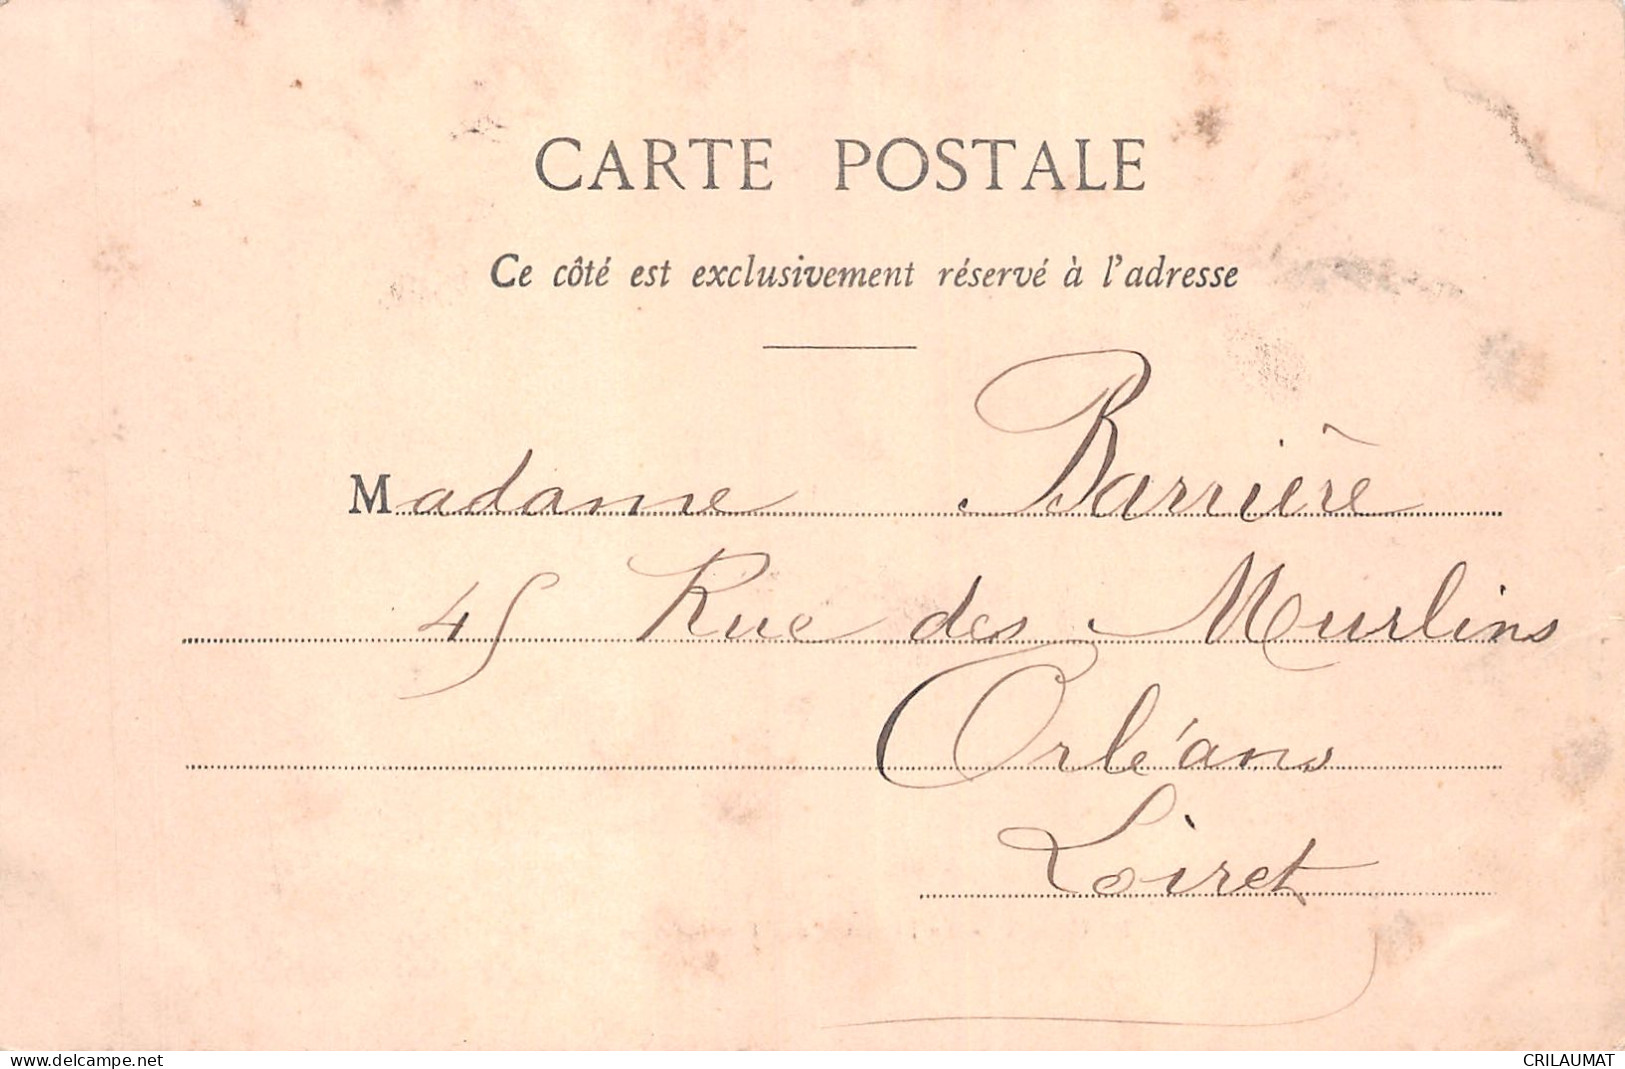 CARTE POSTALE
Ce côté est exclusivement réservé à l'adresse
Madame Barrière
45 Rue des Murlins
Orléans
Loiret
www.delcampe.net
CRILAUMAT